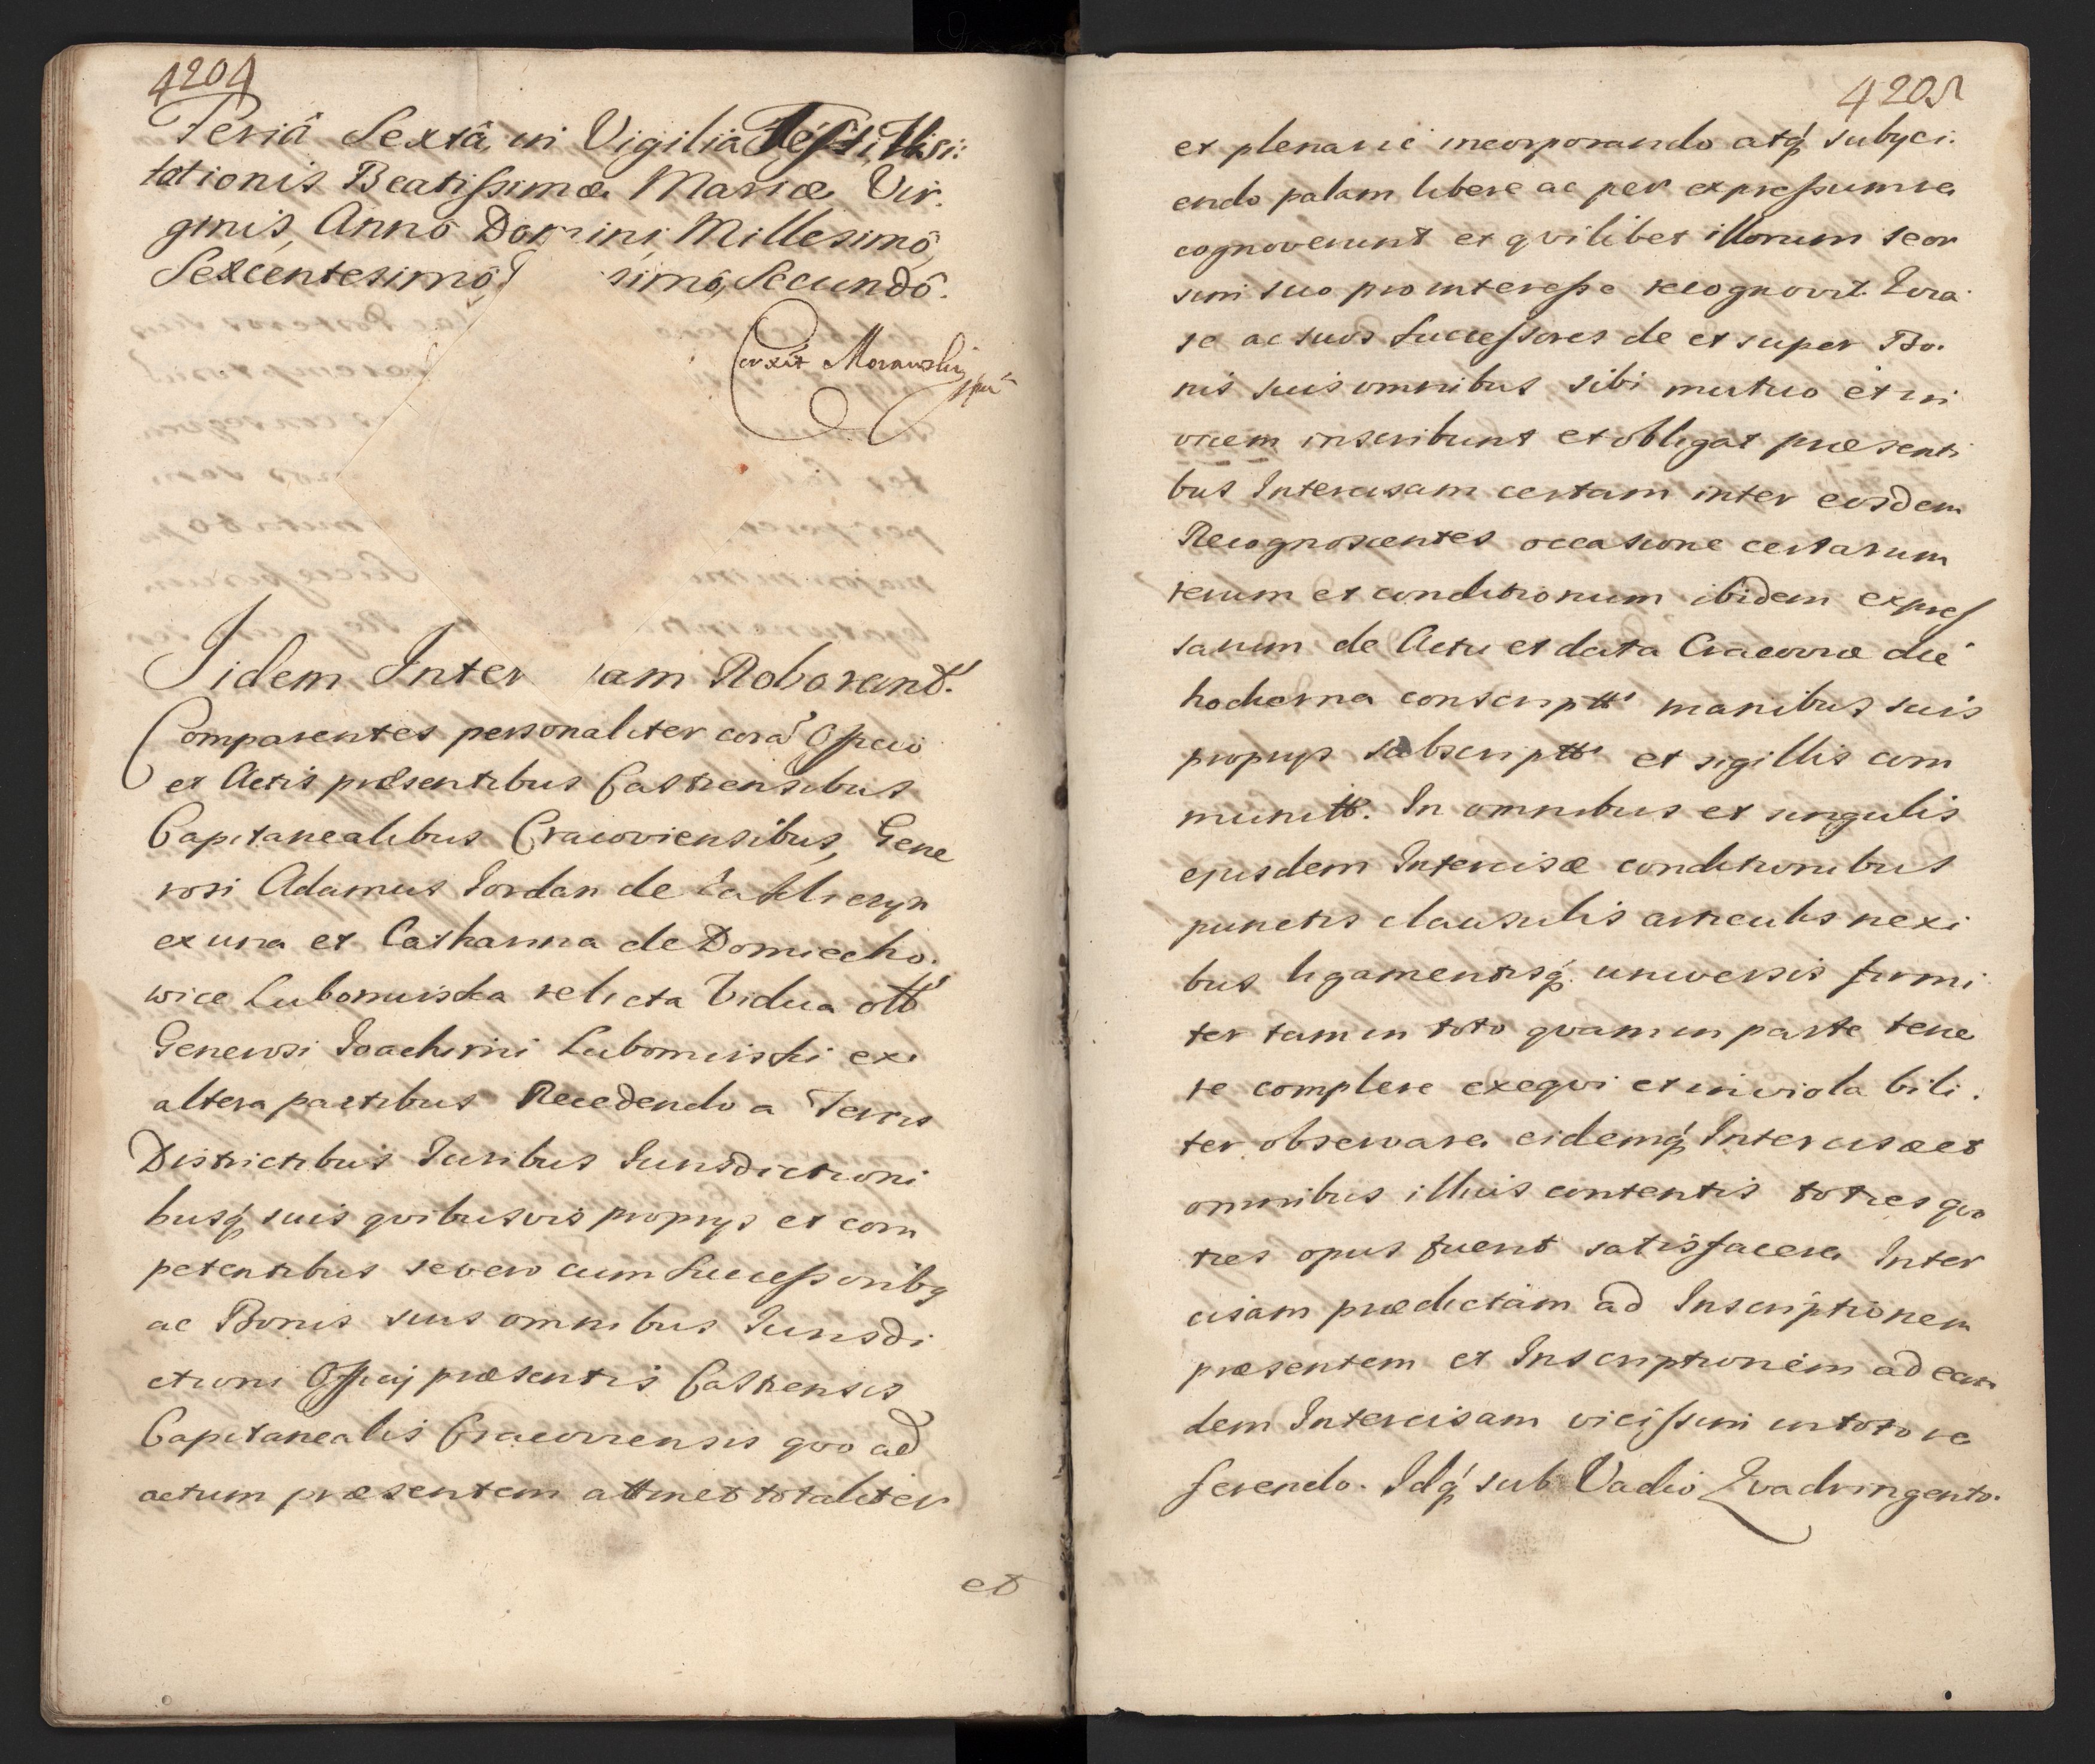 4204
Feriâ Sextâ in Vigiliâ Festi Visi:
tationis Beatissimæ Mariæ Vir.
ginis, Annô Domini Millesimô,
Sexcentesimô simô, Secundô.
Coxit Morawski
Iidem Inter am Roborand.
Comparentes personaliter corā Officio
et Actis præsentibus Castrensibus
Capitanealibus Cracoviensibus, Gene
rosi Adamus Iordan de Zakliczyn
ex una et Catharina de Domiecho.
wice Lubomirska relicta Vidua olī
Generosi Ioachimi Lubomirski ex
altera partibus Recedendo a Terris
Districtibus Iuribus Iurisdictioni
busq́ suis qvibusvis proprijs et com
petentibus se vero cum Successoribq
ac Bonis suis omnibus Iurisdi
ctioni Officij præsentis Castrensis
Capitanealis Cracoviensis qvo ad
actum præsentem attinet totaliter
et
4205
et plenarie incorporando atq́ subyci.
endo palam libere ac per expressum re
cognoverunt et qvilibet illorum seor
sim suo pro interesse recognovit. Qvia
se ac suos Successores de et super Bo.
nis suis omnibus sibi mutuo et in
vicem inscribunt et obligat præsenti
bus Intercisam certam inter eosdem
Recognoscentes occasione certarum
rerum et conditionum ibidem expres
sarum de Actu et data Cracoviæ die
hodierna conscriptt manibus suis
proprijs subscriptt et sigillis com
munitt. In omnibus et singulis
ejusdem Intercisæ conditionibus
punctis clausulis articulis nexi
bus ligamentisq́ universis firmi
ter tam in toto qvam in parte tene
re complere exeqvi et inviolabili.
ter observare eidemq́ Intercisæ et
omnibus illius contentis toties qvo
ties opus fuerit satisfacere Inter
cisam prædictam ad Inscriptionem
præsentem et Inscriptionem ad ean
dem Intercisam vicissim in toto re
ferendo. Idq́ sub Vadio Qvadringento.